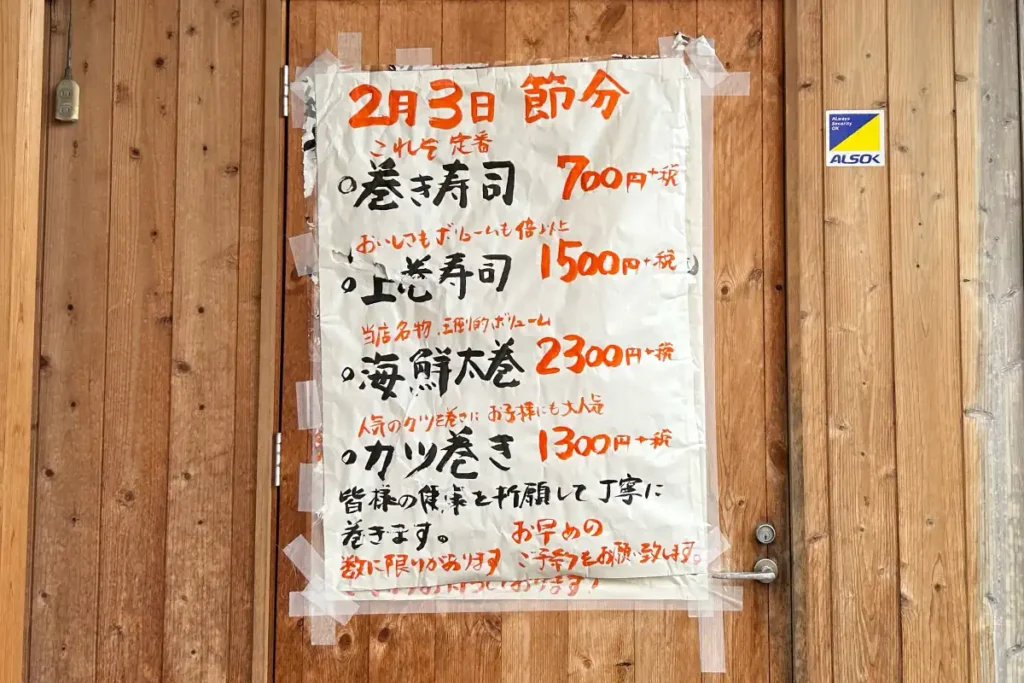 2月3日 節分
これぞ 定番
○巻き寿司 700円+税
おいしさもボリュームも倍以上
○上巻寿司 1500円+税
当店名物 圧倒的ボリューム
○海鮮太巻 2300円+税
人気のカツを巻きに お子様にも大人気
○カツ巻き 1300円+税
皆様の健康を祈願して丁寧に
巻きます。 お早めの
数に限りがあります ご予約をお願い致します。
ALways
Security
OK
ALSOK